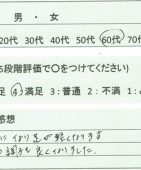 男・女
20代 30代 40代 50代 60代 70
5段階評価で○をつけてください)
足 ④満足 3:普通 2:不満 1:
感想
になり足が軽くなります
調子も良くなりました。